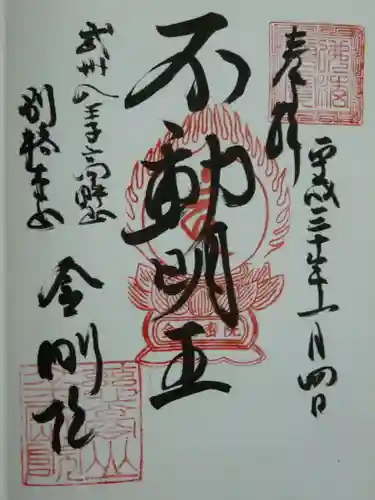 奉拝
平成三十年一月四日
不動明王
武州八王子高野山
別格本山
金剛院